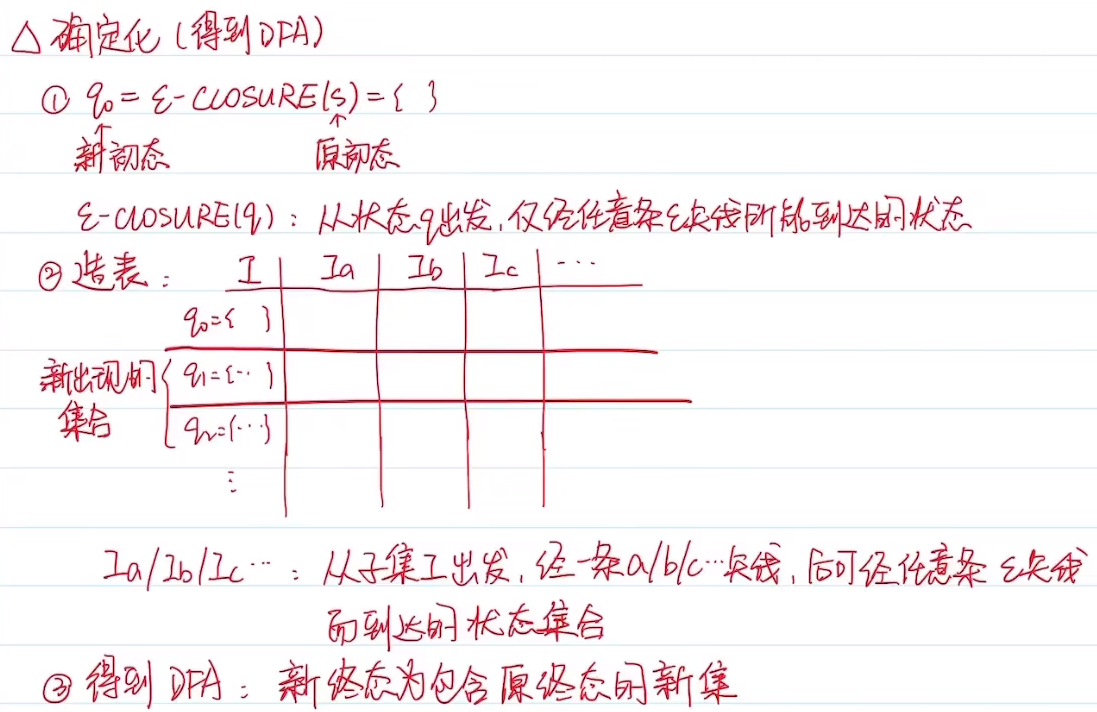 △ 确定化 (得到DFA)
① q₀ = ε-CLOSURE(s) = { }
新初态 原初态
ε-CLOSURE(q) : 从状态q出发, 仅经任意条ε矢线所能到达的状态
② 造表 : I Ia Ib Ic ...
q₀={ }
新出现的集合 q₁={...}
q₂={...}
⋮
Ia/Ib/Ic... : 从子集I出发, 经一条a/b/c...矢线, 后可经任意条ε矢线
而到达的状态集合
③ 得到 DFA : 新终态为包含原终态的新集